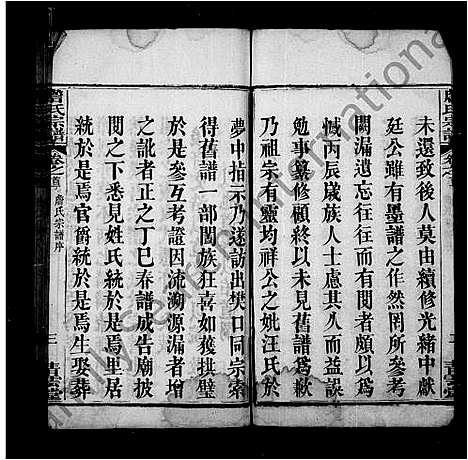 未還致後人莫由續修光緒中獻
廷公雖有墨譜之作然罔所參考
闕漏遺忘往往而有閱者頗以爲
憾丙辰歲族人士慮其久而益誤
勉事纂修顧終以未見舊譜爲歉
乃祖宗有靈均祥公之妣汪氏於
夢中指示乃遂訪出樊口同宗索
得舊譜一部闔族狂喜如獲拱璧
於是參互考證因流溯源漏者增
之訛者正之丁巳春譜成告廟披
閱之下悉見姓氏統於是焉里居
統於是焉官爵統於是焉生娶葬
詹氏宗譜 卷之首 詹氏宗譜序 三